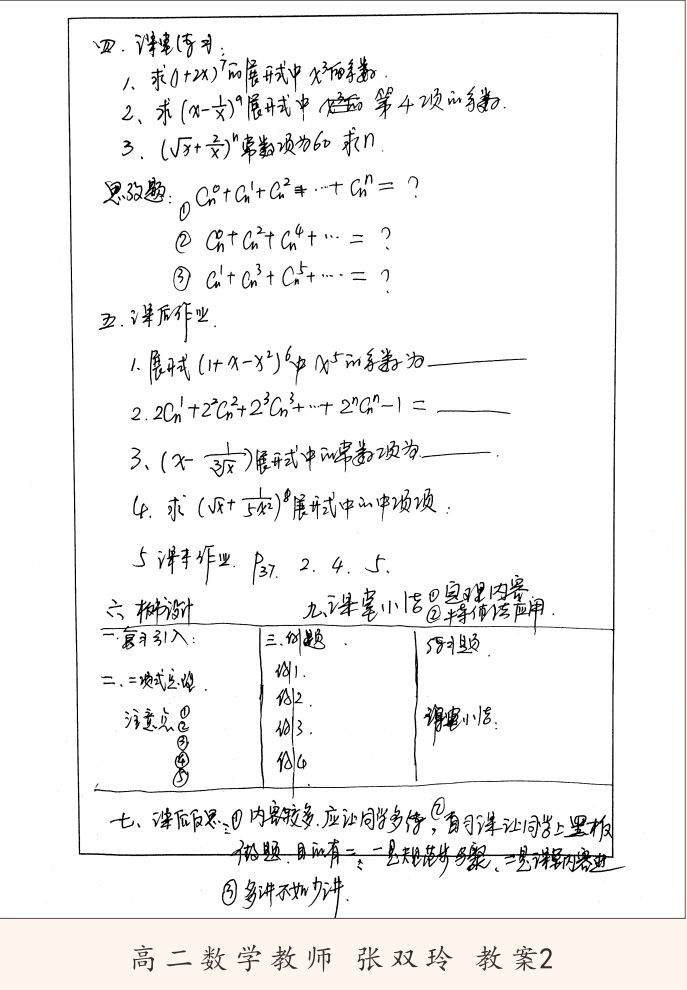 四、课堂练习:
1、求(1+2x)⁷的展开式中x³的系数.
2、求(x-1/x)⁹展开式中 第4项的系数.
3、(√x+2/x)ⁿ常数项为60 求n
思考题:① Cn⁰+Cn¹+Cn²+…+Cnⁿ=?
② Cn⁰+Cn²+Cn⁴+…=?
③ Cn¹+Cn³+Cn⁵+…=?
五.课后作业.
1.展开式(1+x-x²)⁶中x⁵的系数为______
2.2Cn¹+2²Cn²+2³Cn³+…+2ⁿCnⁿ-1=______
3、(x-1/3√x)展开式中的常数项为______.
4.求(√x+1/5x²)⁸展开式中的中项项.
5 课本作业.P37. 2. 4. 5.
六 板书设计
九.课堂小结①定理内容
②等值法应用.
一.复习引入:
二、二项式定理.
注意点①
②
③
④
⑤
三.例题.
例1.
例2.
例3.
例4
练习题.
课堂小结:
七、课后反思:①内容较多.应让同学多练,②自习课让同学上黑板
做题.目的有二:一是规范步骤、二是课堂内容
③多讲不如少讲.
高二数学教师 张双玲 教案2